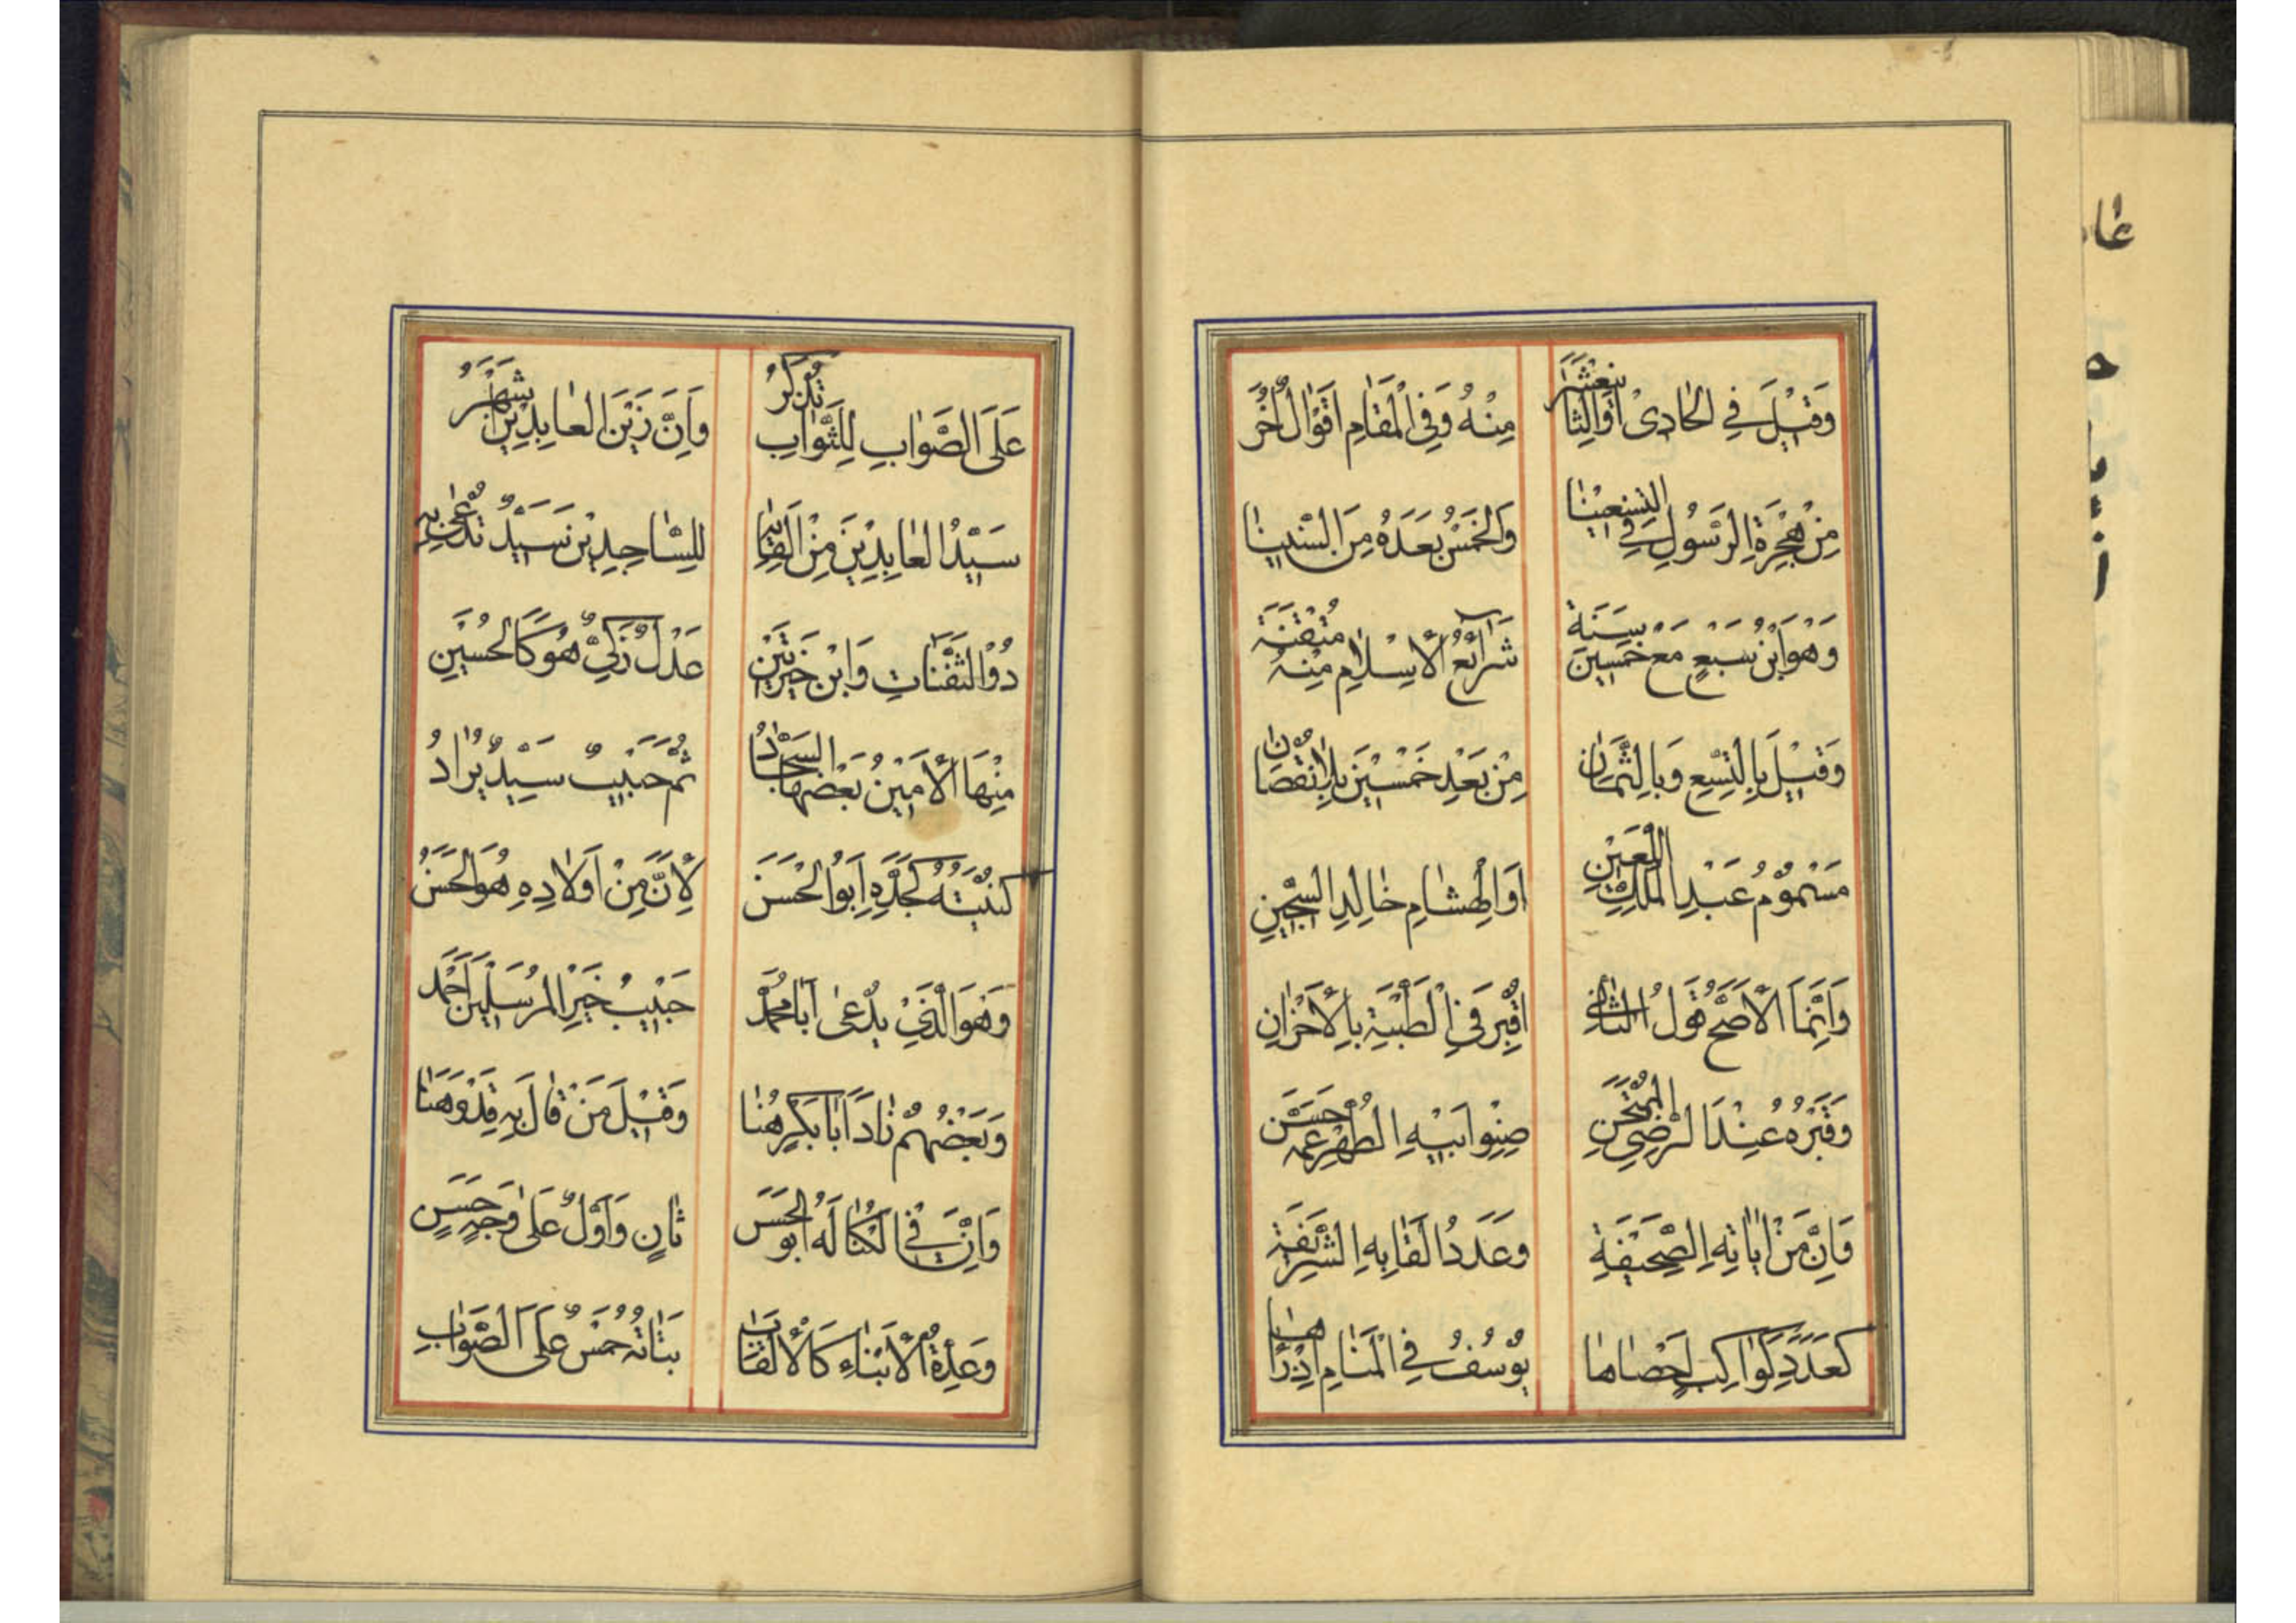 وَقِيْلَ فِي الحَادِىْ أَوِ الثَّانِيْ عَشَرْ مِنْهُ وَفِي الْمَقَامِ اَقْوَالٌ اُخَرْ
مِنْ هِجْرَةِ الرَّسُولِ فِي التِّسْعِيْنَا وَالخَمْسُ بَعْدَهُ مِنَ السِّنِينَا
وَهْوَ ابْنُ سَبْعٍ مَعَ خَمْسِيْنَ سَنَةٍ شَرَائِعُ الْاِسْلَامِ مِنْهُ مُتْقَنَةٍ
وَقِيْلَ بِالتِّسْعِ وَبِالثَّمَانِ مِنْ بَعْدِ خَمْسِيْنَ بِلَا نُقْصَانِ
مَسْمُوْمُ عَبْدِ الْمَلِكِ اللَّعِيْنِ اَوِ الْهِشَامِ خَالِدِ السِّجِّينِ
وَاِنَّمَا الْاَصَحُّ قَوْلُ الثَّانِيْ اُقْبِرَ فِي الْطَّيْبَةِ بِالْاَحْزَانِ
وَقَبْرُهُ عِنْدَ الرَّضِيِّ الْمُمْتَحَنِ صِنْوِ اَبِيْهِ الطُّهْرِ عَمِّهِ حَسَنْ
وَاِنَّ مِنْ اٰيَاتِهِ الصَّحِيْفَةِ وَعَدَدُ اَلْقَابِهِ الشَّرِيْفَةِ
كَعَدَدِ كَوَاكِبٍ اَحْصَاهَا يُوْسُفُ فِي الْمَنَامِ اِذْ رَاٰهَا
عَلَى الصَّوَابِ لِلثَّوَابِ تُذْكَرُ وَاِنَّ زَيْنَ الْعَابِدِيْنَ اَشْهَرُ
سَيِّدُ الْعَابِدِيْنَ مِنْ اَلْقَابِهِ لِلسَّاجِدِيْنَ سَيِّدٌ تُدْعٰى بِهِ
ذُوْ الثَّفَنَاتِ وَابْنُ خَيْرَتَيْنِ عَدْلٌ زَكِيٌّ هُوَ كَالْحُسَيْنِ
مِنْهَا الْاَمِيْنُ بَعْضُهَا السَّجَّادُ ثُمَّ حَبِيْبٌ سَيِّدٌ يُرَادُ
كُنْيَتُهُ كَجَدِّهِ اَبُو الْحَسَنْ لِاَنَّ مِنْ اَوْلَادِهِ هُوَ الْحَسَنْ
وَهُوَ الَّذِيْ يُدْعٰى اَبَا مُحَمَّدْ حَبِيْبُ خَيْرِ الْمُرْسَلِيْنَ اَحْمَدْ
وَبَعْضُهُمْ نَادَ اَبَا بَكْرٍ هُنَا وَقِيْلَ مَنْ قَالَ بِهِ قَدْ وَهَنَا
وَاِنَّ فِي الْكُنَا لَهُ اَبُو الْحَسَنْ ثَانٍ وَاَوَّلٌ عَلٰى وَجْهٍ حَسَنٍ
وَعِدَّةُ الْاَبْنَاءِ كَالْاَلْقَابِ بَنَاتُهُ خَمْسٌ عَلَى الصَّوَابِ